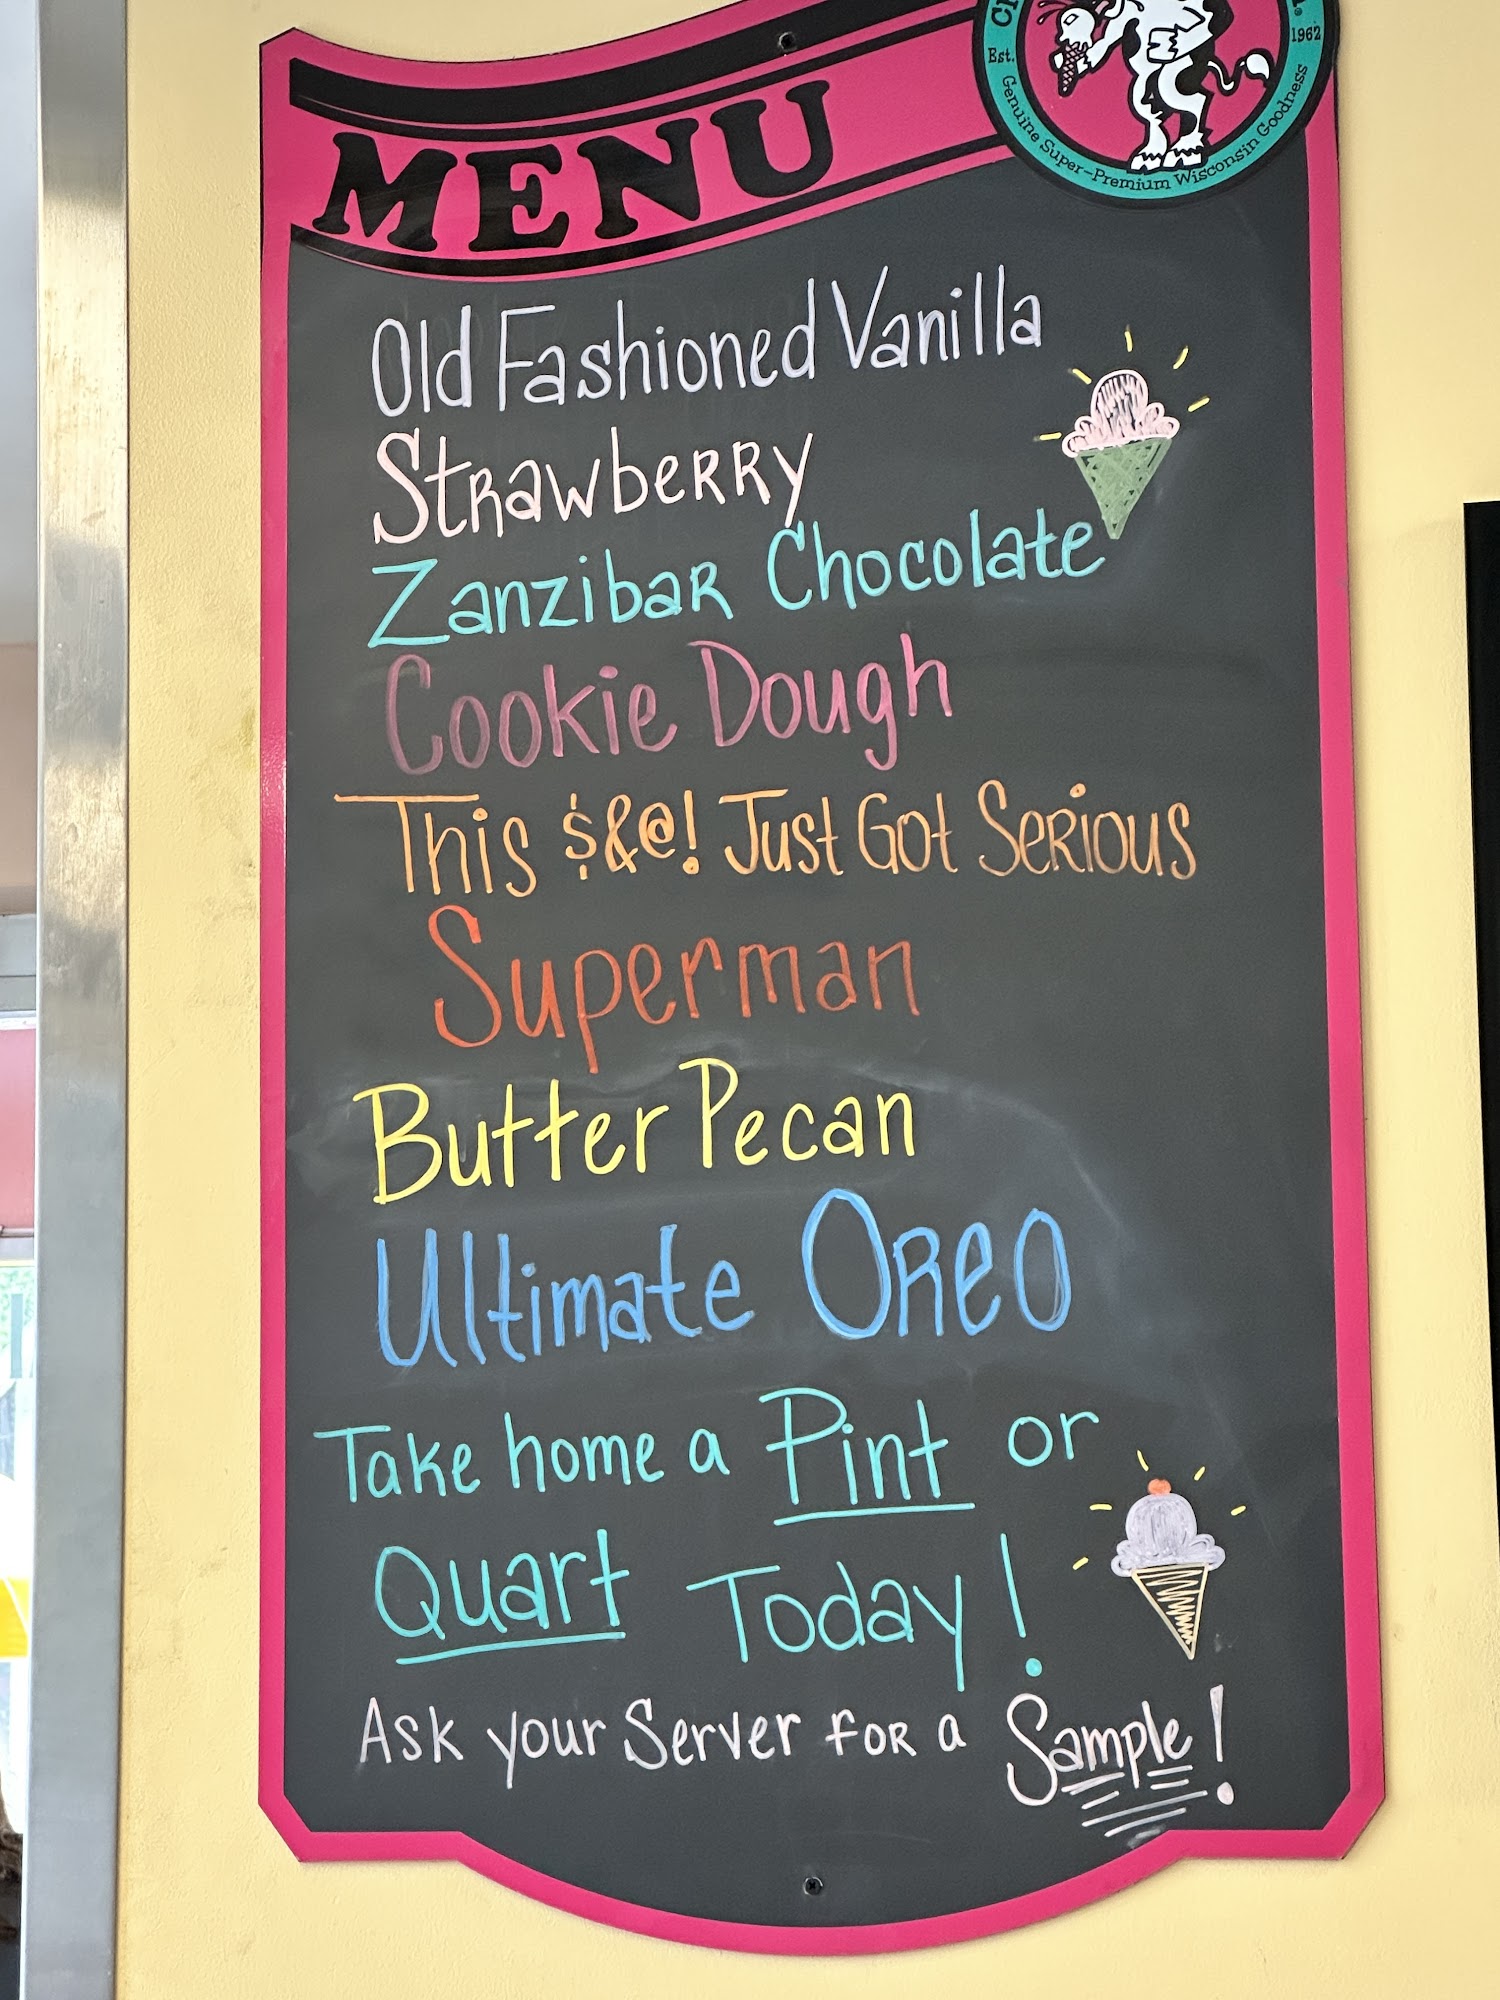 MENU
Est. 1962
Genuine Super-Premium Wisconsin Goodness
Old Fashioned Vanilla
Strawberry
Zanzibar Chocolate
Cookie Dough
This $&@! Just Got Serious
Superman
Butter Pecan
Ultimate Oreo
Take home a Pint or
Quart Today!
Ask your Server for a Sample!